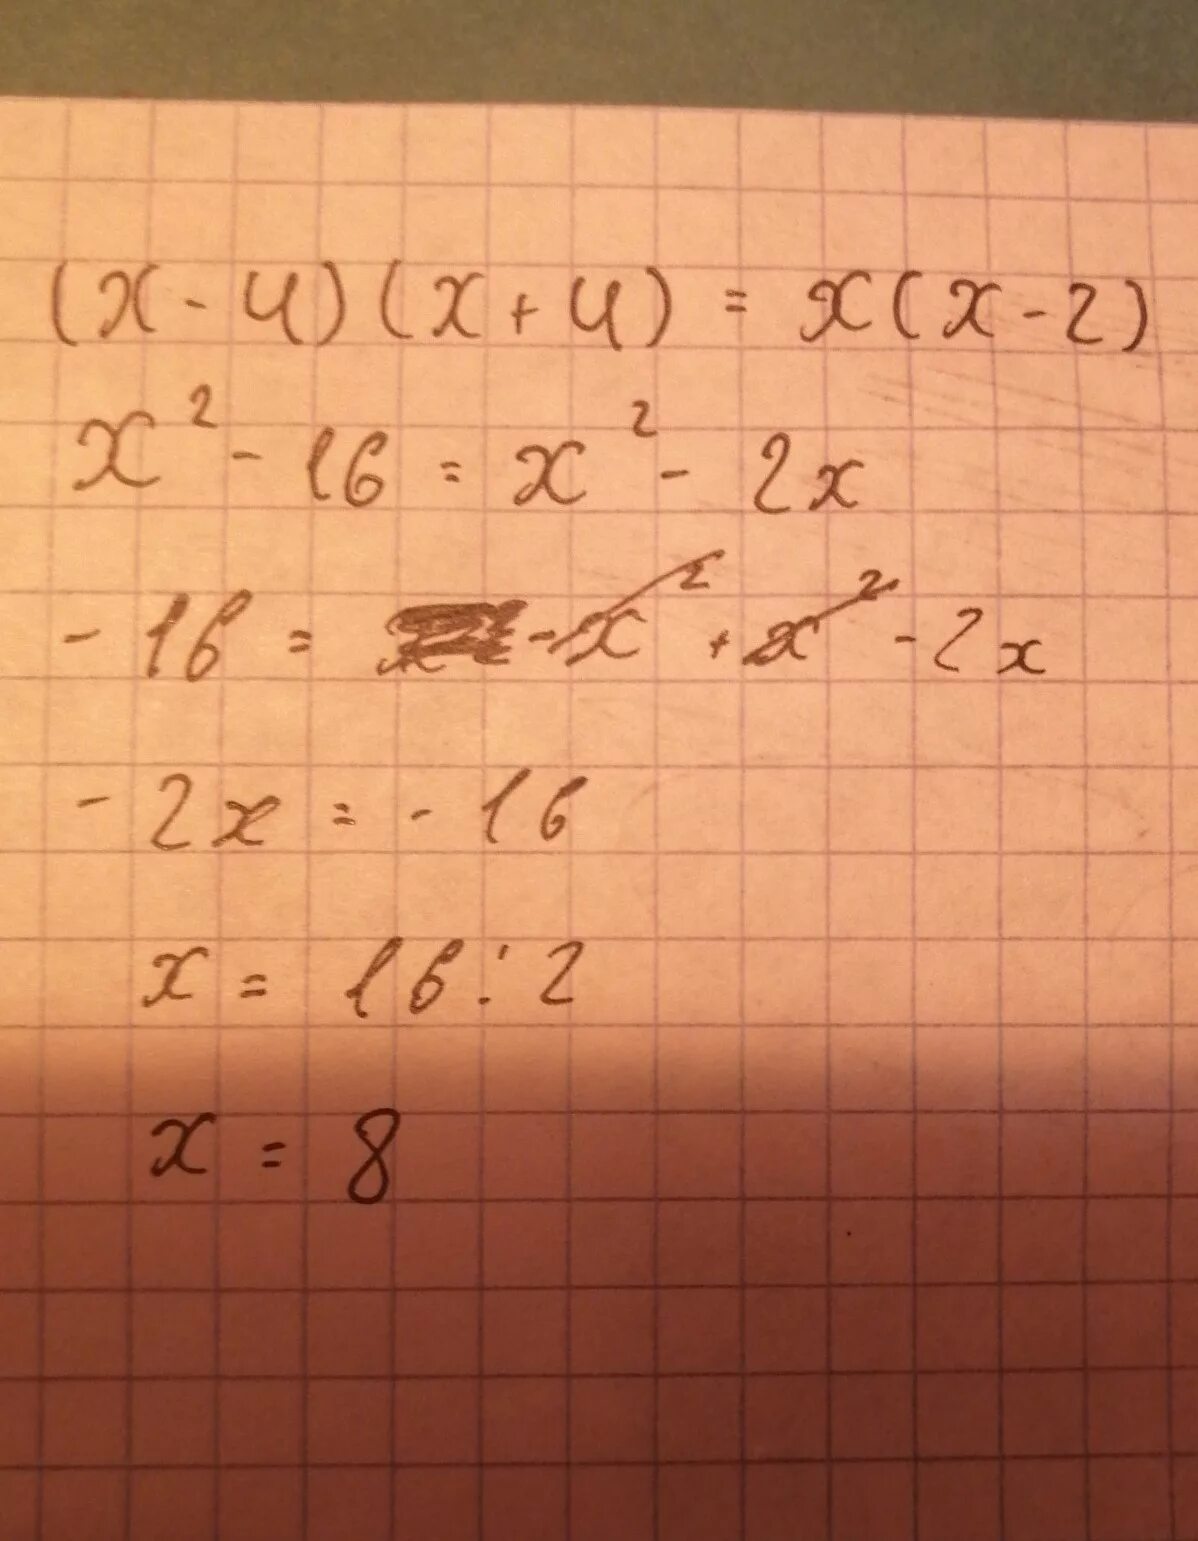 (x - 4)(x + 4) = x(x - 2)
x² - 16 = x² - 2x
- 16 = - x² + x² - 2x
- 2x = - 16
x = 16 : 2
x = 8